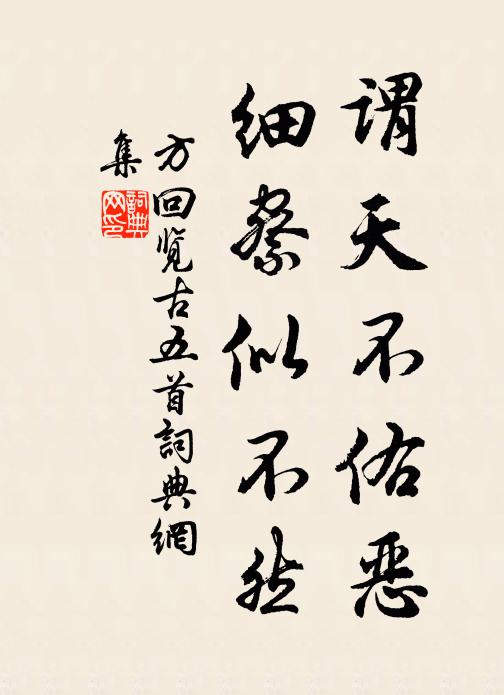 谓天不佑恶
细察似不然
方回览古五首词典網
集
詞典網印